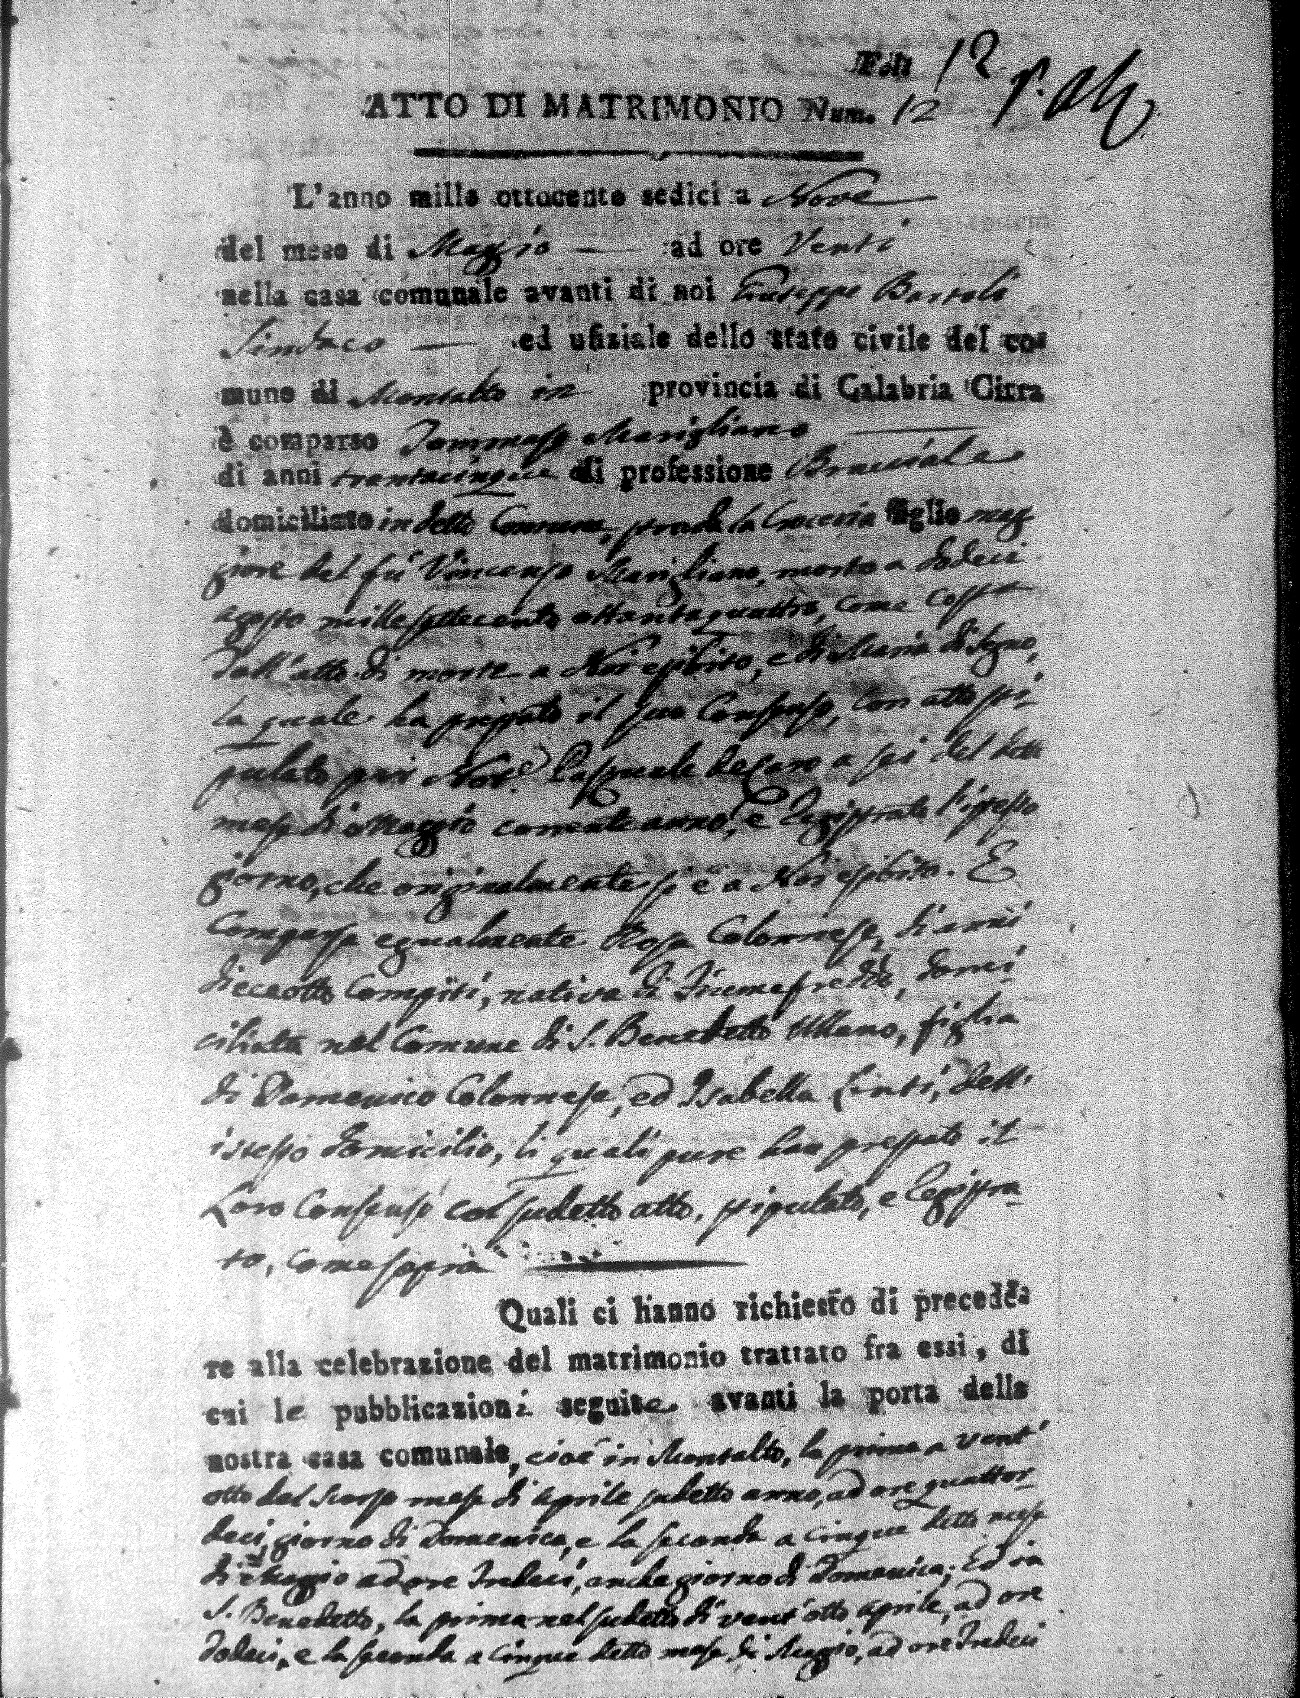 Foli 12
ATTO DI MATRIMONIO Num. 12
L'anno mille ottocento sedici a Nove
del mese di Maggio ad ore Venti
nella casa comunale avanti di noi Giuseppe Bartoli
Sindaco ed ufiziale dello stato civile del co-
mune di Montalto in provincia di Calabria Citra
è comparso Tommaso Marigliano
di anni trentacinque di professione Bracciale
domiciliato in detto Comune, strada la Croceria figlio mag-
giore del fù Vincenzo Marigliano, morto a dodeci
agosto millesettecento ottantaquattro, come costa
dall'atto di morte a Noi esibito, e di Maria
la quale ha prestato il suo Consenso, con atto sti-
pulato per Not.r Pasquale a sei del detto
mese di Maggio corrente anno, e registrato l'istesso
giorno, che originalmente si è a Noi esibito. E
Comparsa egualmente Rosa Colonnese, di anni
dieceotto Compiti, nativa di Fiumefreddo, domi
ciliata nel Comune di S. Benedetto Ullano, figlia
di Domenico Colonnese, ed Isabella Linti, dell'
istesso domicilio, li quali pure han prestato il
Loro Consenso col sudetto atto, stipulato, e registra-
to, come sopra
Quali ci hanno richiesto di procede
re alla celebrazione del matrimonio trattato fra essi, di
cui le pubblicazioni seguite avanti la porta della
nostra casa comunale, cioè in Montalto, la prima a vent'
otto del scorso mese di Aprile sudetto anno, ad ore quattor-
deci, giorno di Domenica, e la seconda a cinque detto mese
di Maggio ad ore Tredeci, anche giorno di Domenica; Ed in
S. Benedetto, la prima nel sudetto di vent'otto Aprile, ad ore
dodeci, e la seconda a cinque detto mese di Maggio, ad ore Tredeci